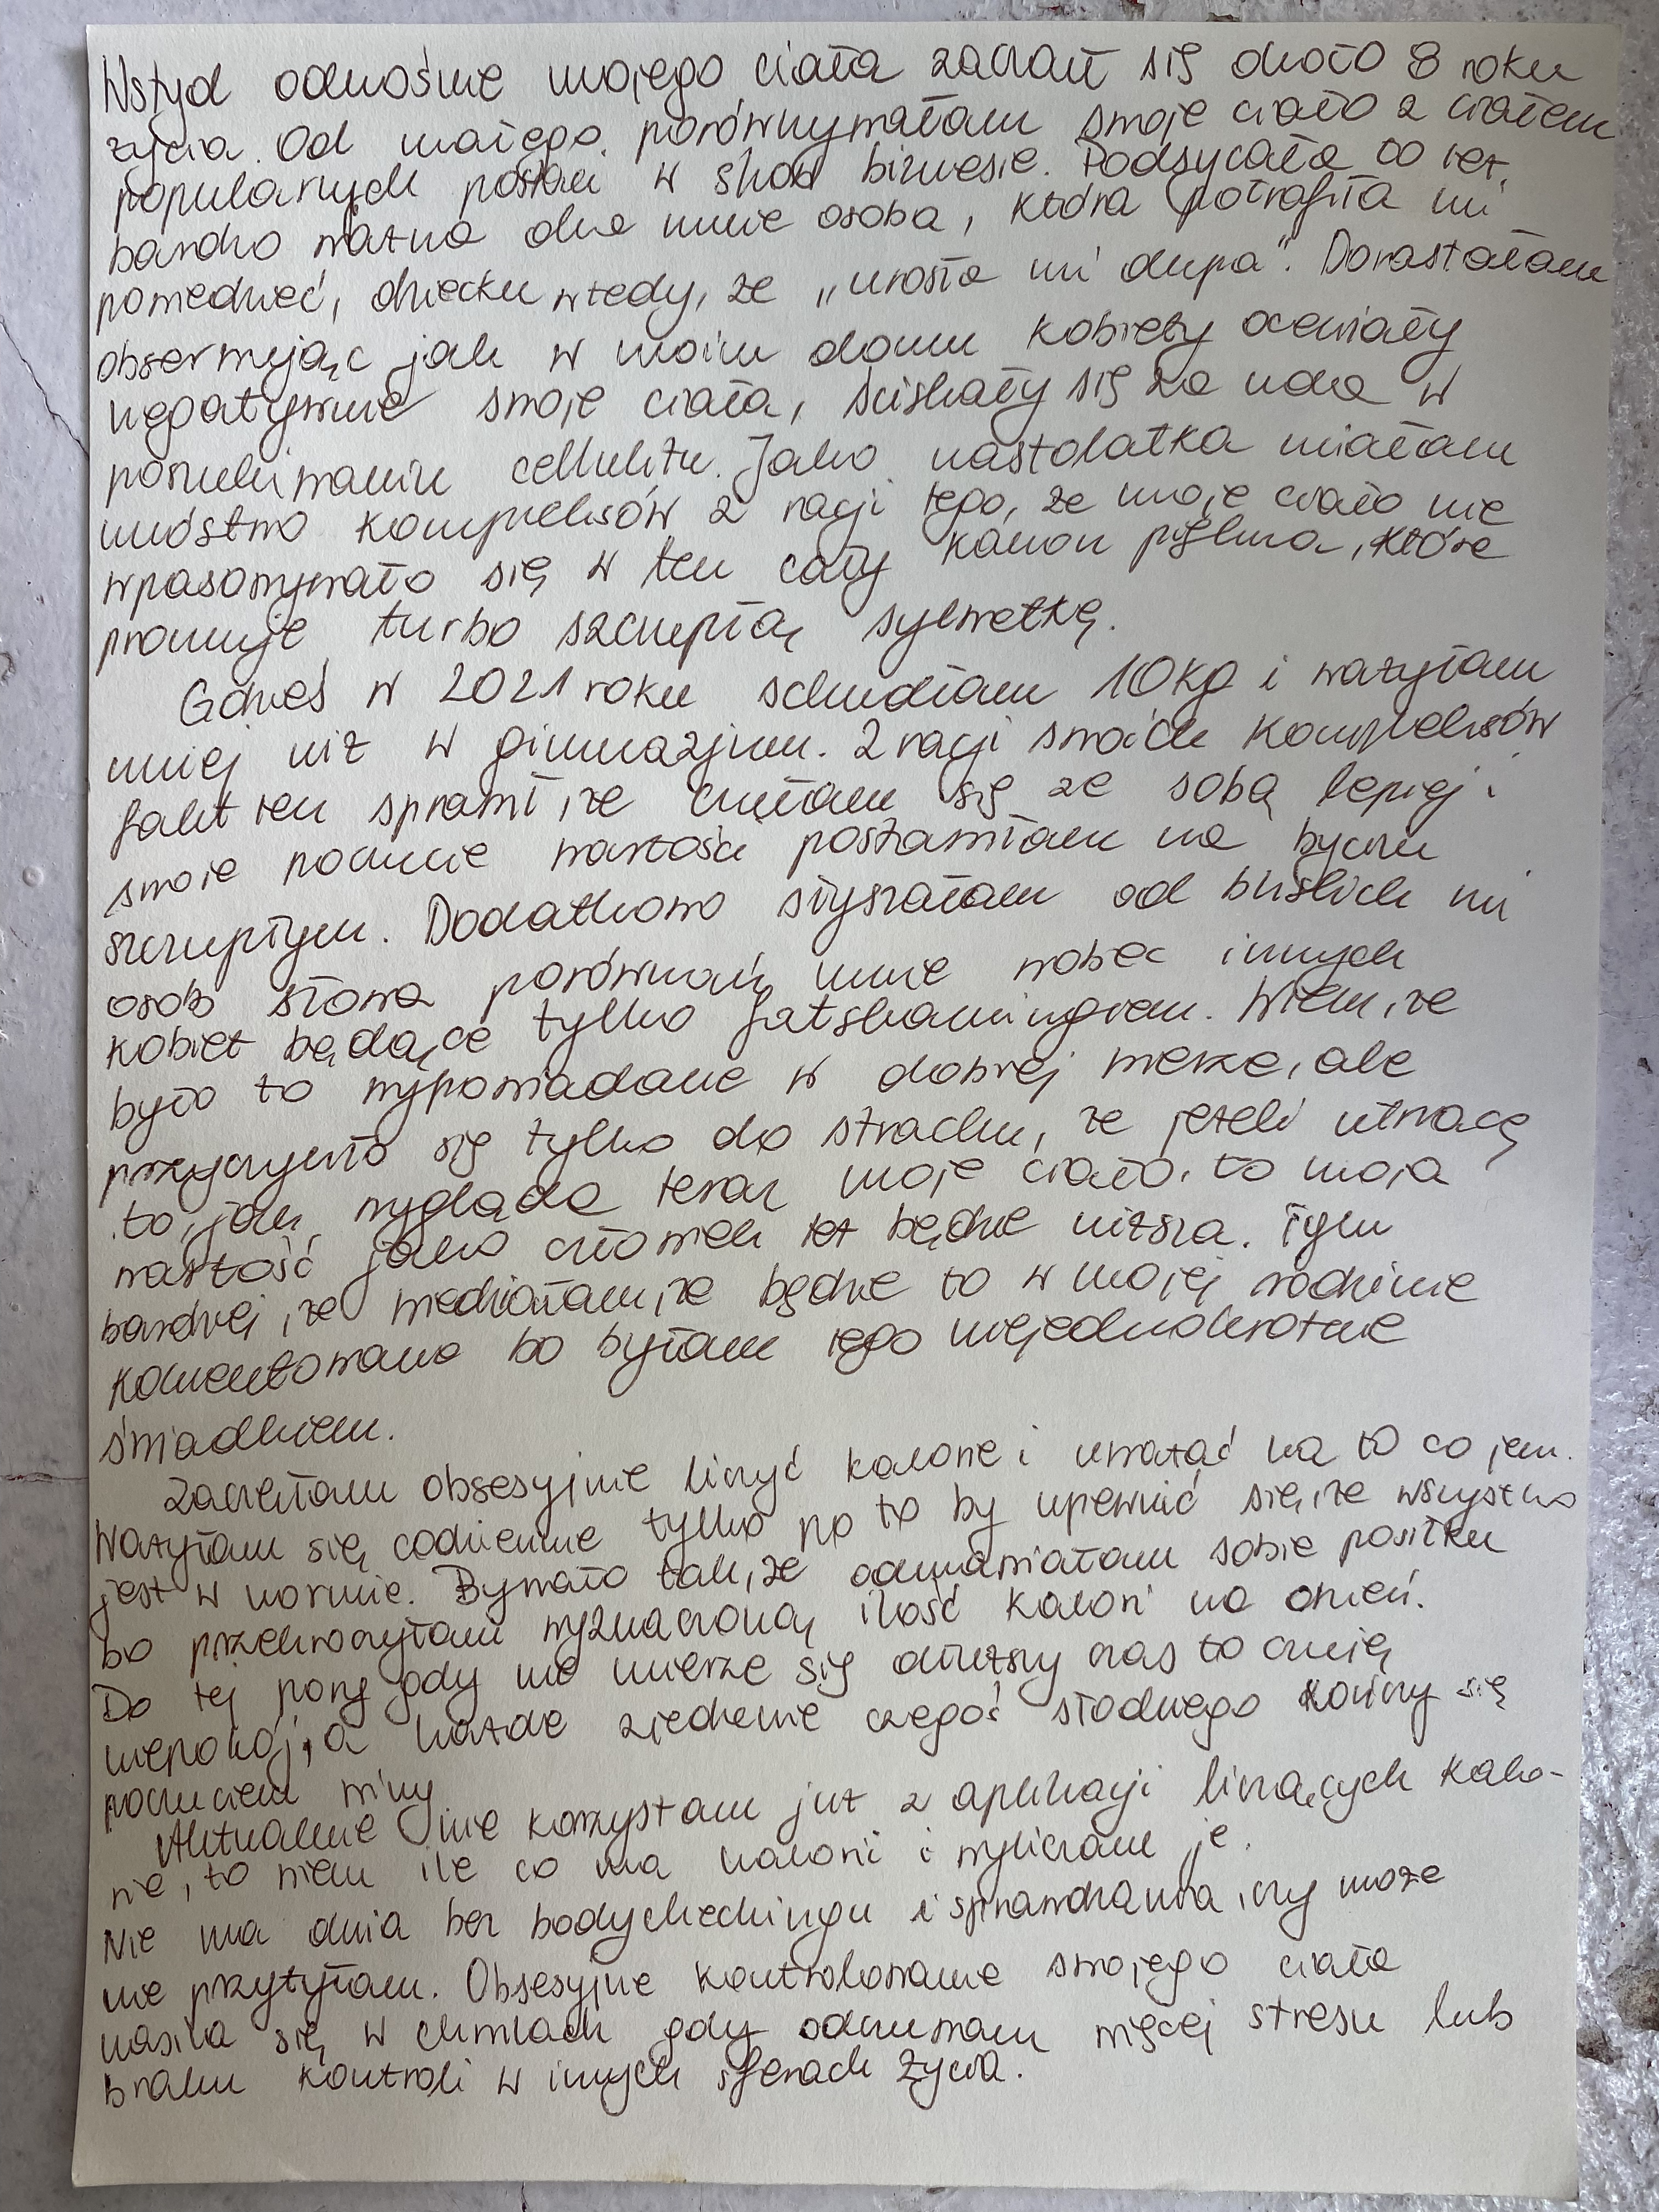 Wstyd odnośnie mojego ciała zaczął się około 8 roku
życia. Od małego porównywałam swoje ciało z ciałem
popularnych postaci w show biznesie. Podsycała to też
bardzo ważna dla mnie osoba, która potrafiła mi
powiedzieć, dziecku wtedy, że „urosła mi dupa”. Dorastałam
obserwując jak w moim domu kobiety oceniały
negatywnie swoje ciała, ściskały się za uda w
poszukiwaniu cellulitu. Jako nastolatka miałam
mnóstwo kompleksów z racji tego, że moje ciało nie
wpasowywało się w ten cały kanon piękna, które
promuje turbo szczupłą sylwetkę.
Gdzieś w 2021 roku schudłam 10kg i ważyłam
mniej niż w gimnazjum. Z racji swoich kompleksów
fakt ten sprawił, że czułam się ze sobą lepiej i
swoje poczucie wartości postawiłam na byciu
szczupłym. Dodatkowo słyszałam od bliskich mi
osób słowa porównań mnie wobec innych
kobiet będące tylko fatshamingiem. Wiem, że
było to wypowiadane w dobrej wierze, ale
przyczyniło się tylko do strachu, że jeżeli utracę
to, jak wygląda teraz moje ciało, to moja
wartość jako człowiek też będzie niższa. Tym
bardziej, że wiedziałam, że będzie to w mojej rodzinie
komentowane bo byłam tego niejednokrotnie
świadkiem.
Zaczęłam obsesyjnie liczyć kalorie i uważać na to co jem.
Ważyłam się codziennie tylko po to by upewnić się, że wszystko
jest w normie. Bywało tak, że odmawiałam sobie posiłku
bo przekroczyłam wyznaczoną ilość kalorii na dzień.
Do tej pory gdy nie mierzę się dłuższy czas to czuję
niepokój, a każde zjedzenie czegoś słodkiego kończy się
poczuciem winy
Aktualnie nie korzystam już z aplikacji liczących kalo-
rie, to wiem ile co ma kalorii i wyliczam je.
Nie ma dnia bez bodycheckingu i sprawdzania, czy może
nie przytyłam. Obsesyjne kontrolowanie swojego ciała
nasila się w chwilach gdy odczuwam więcej stresu lub
braku kontroli w innych sferach życia.